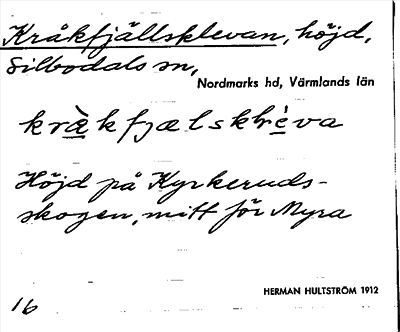 Kråkfjällsklevan, höjd,
Silbodals sn,
Nordmarks hd, Värmlands län
kràkfjælsklèva
Höjd på Kyrkeruds-
skogen, mitt för Myra
HERMAN HULTSTRÖM 1912
16